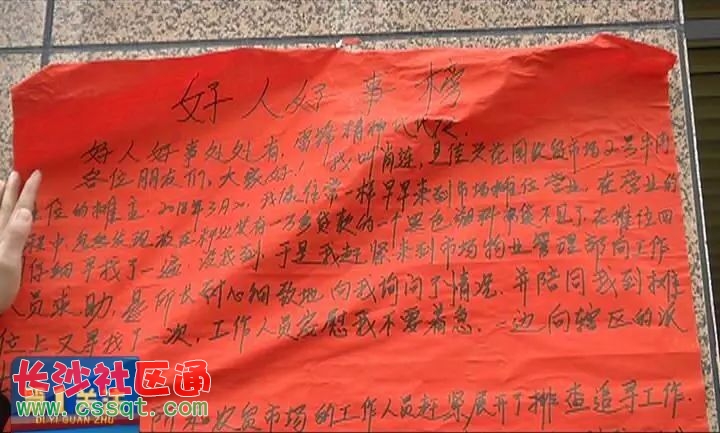 好人好事榜
好人好事处处有，雷锋精神代代传
各位朋友们，大家好！我叫肖莲，是佳兴花园农贸市场2号牛肉
位的摊主，2018年3月2，我像往常一样早早来到市场摊位营业，在营业的
程中突然发现放在柜台装有一万多贷款的一个黑色塑料不见了，在摊位四
仔细寻找了一遍，没找到，于是我赶紧来到市场物业管理部向工作
人员求助，所长耐心细致地向我询问了情况，并陪同我到摊
位上又寻找了一次，工作人员安慰我不要着急，一边向辖区的派
所和农贸市场的工作人员赶紧展开了排查追寻工作.
长沙社区通
www.cssqt.com
DI YI GUAN ZHU